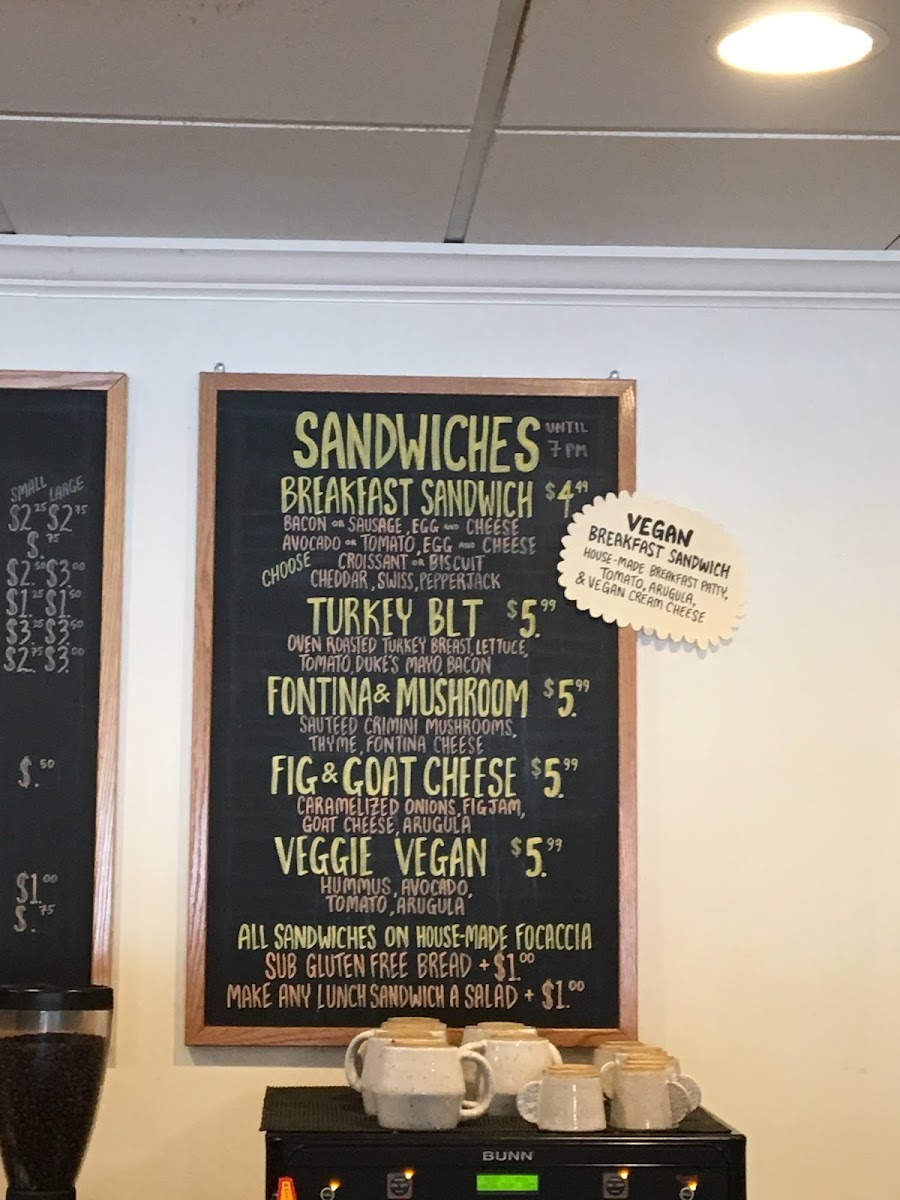 SMALL LARGE
$2.25 $2.75
$.75
$2.50 $3.00
$1.25 $1.50
$3.25 $3.50
$2.75 $3.00
$.50
$1.00
$.75
SANDWICHES UNTIL 7 PM
BREAKFAST SANDWICH $4.49
BACON OR SAUSAGE, EGG AND CHEESE
AVOCADO OR TOMATO, EGG AND CHEESE
CHOOSE CROISSANT OR BISCUIT
CHEDDAR, SWISS, PEPPERJACK
TURKEY BLT $5.99
OVEN ROASTED TURKEY BREAST, LETTUCE,
TOMATO, DUKE'S MAYO, BACON
FONTINA & MUSHROOM $5.99
SAUTEED CRIMINI MUSHROOMS,
THYME, FONTINA CHEESE
FIG & GOAT CHEESE $5.99
CARAMELIZED ONIONS, FIG JAM,
GOAT CHEESE, ARUGULA
VEGGIE VEGAN $5.99
HUMMUS, AVOCADO,
TOMATO, ARUGULA
ALL SANDWICHES ON HOUSE-MADE FOCACCIA
SUB GLUTEN FREE BREAD + $1.00
MAKE ANY LUNCH SANDWICH A SALAD + $1.00
VEGAN
BREAKFAST SANDWICH
HOUSE-MADE BREAKFAST PATTY,
TOMATO, ARUGULA,
& VEGAN CREAM CHEESE
BUNN